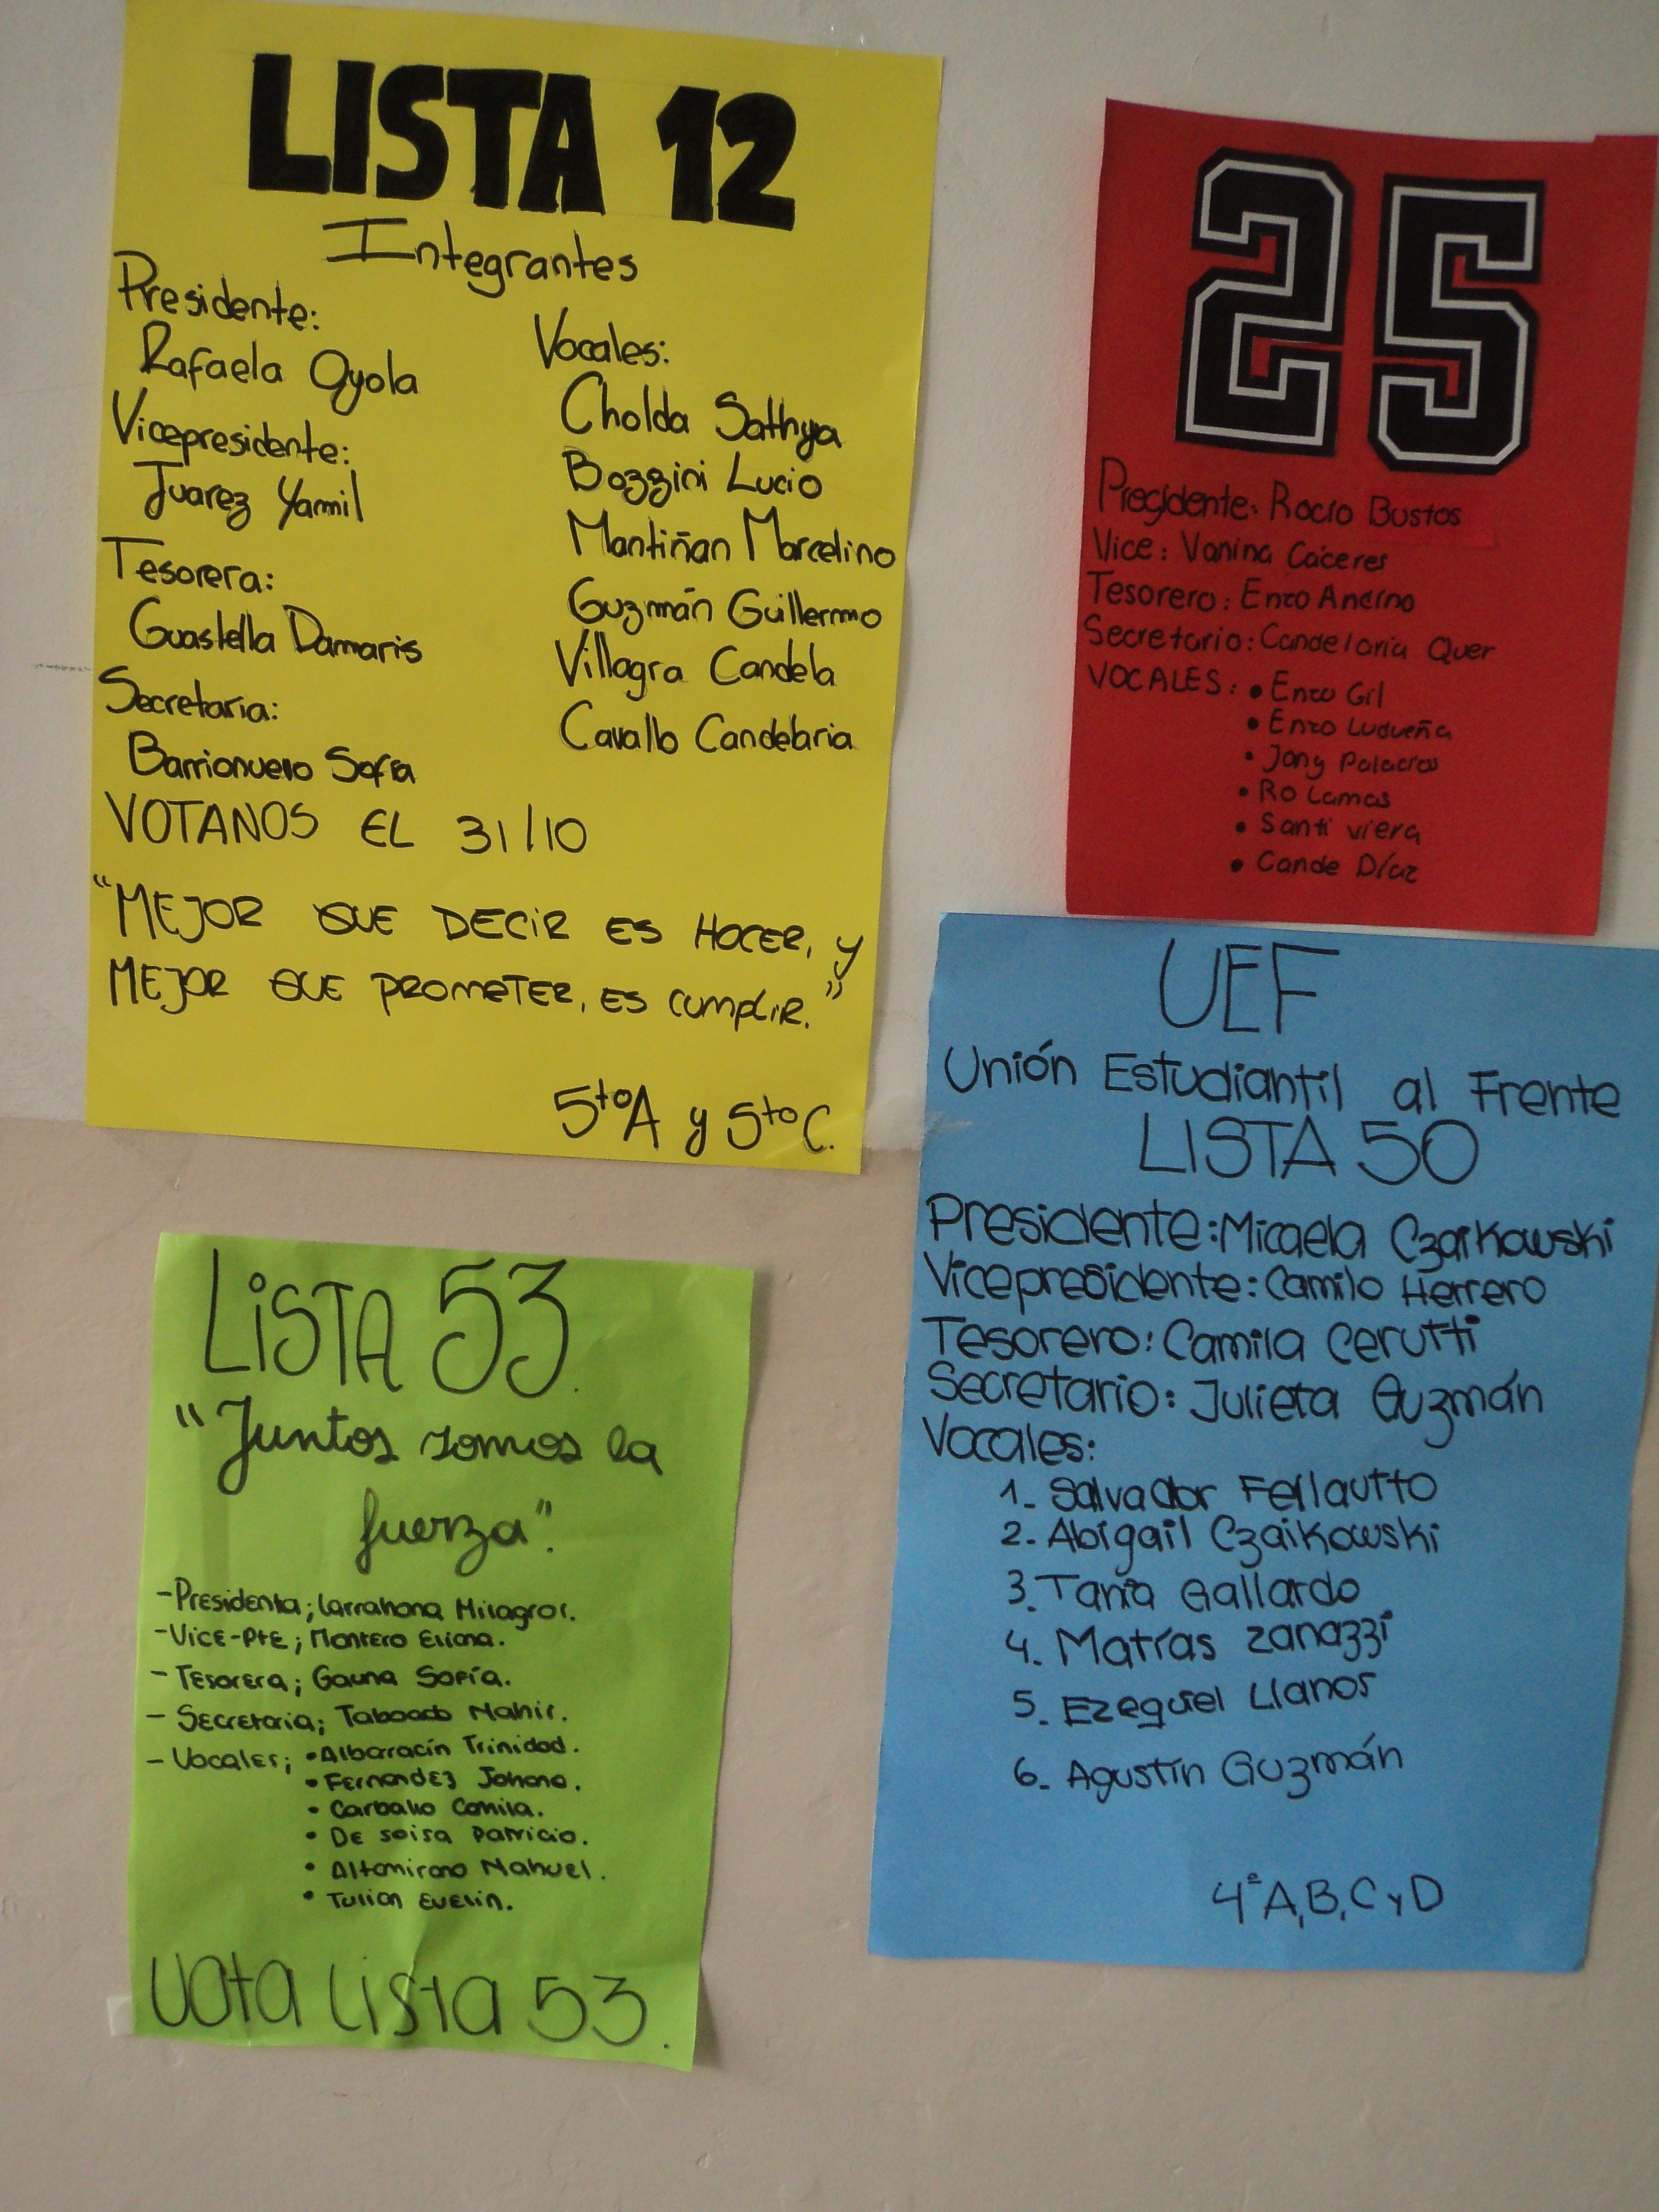 LISTA 12
Integrantes
Presidente:
Rafaela Oyola
Vicepresidente:
Juarez Yamil
Tesorera:
Guastella Damaris
Secretaria:
Barrionuevo Sofía
Vocales:
Cholda Sathya
Bozzini Lucio
Mantiñan Marcelino
Guzmán Guillermo
Villagra Candela
Cavallo Candelaria
VOTANOS EL 31/10
"MEJOR QUE DECIR ES HACER, y
MEJOR QUE PROMETER, ES CUMPLIR."
5to A y 5to C.
25
Precidente: Rocío Bustos
Vice: Vanina Cáceres
Tesorero: Enzo Andino
Secretario: Candelaria Quer
VOCALES: • Enzo Gil
• Enzo Ludueña
• Jony Palacios
• Ro Lamas
• Santi viera
• Cande Díaz
LISTA 53.
"Juntos somos la
fuerza".
- Presidenta; Larrahona Milagros.
- Vice-Pte; Montero Eliana.
- Tesorera; Gauna Sofía.
- Secretaria; Taboada Nahir.
- Vocales; • Albarracín Trinidad.
• Fernandez Johana.
• Carballo Camila.
• De soisa Patricio.
• Altamirano Nahuel.
• Tulian Evelin.
Vota Lista 53.
UEF
Unión Estudiantil al Frente
LISTA 50
Presidente: Micaela Czaikowski
Vicepresidente: Camilo Herrero
Tesorero: Camila Cerutti
Secretario: Julieta Guzmán
Vocales:
1. Salvador Fellautto
2. Abigail Czaikowski
3. Tania Gallardo
4. Matías Zanazzi
5. Ezequiel Llanos
6. Agustín Guzmán
4º A, B, C y D